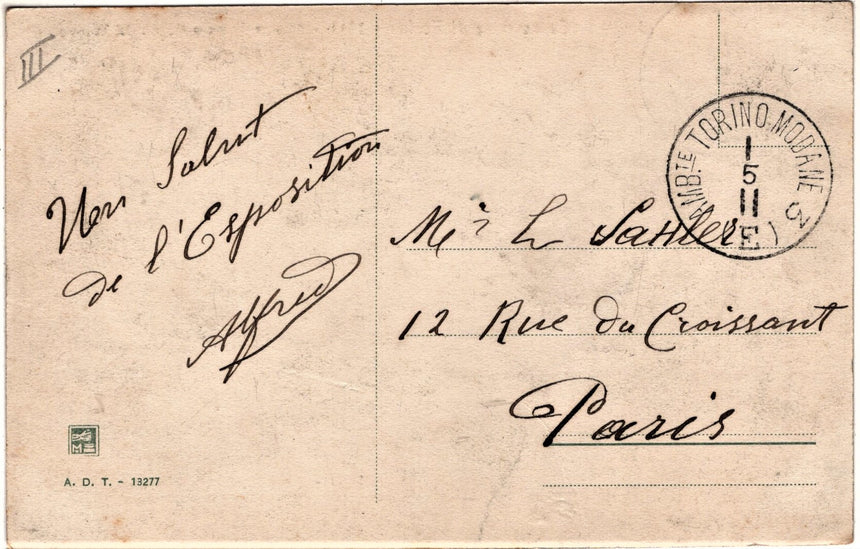 III
Uen Salut
de l'Esposition
Alfred
AMB.TE TORINO-MODANE 3
1
5
11
E
Mr L Sahler
12 Rue du Croissant
Paris
M
A. D. T. - 13277